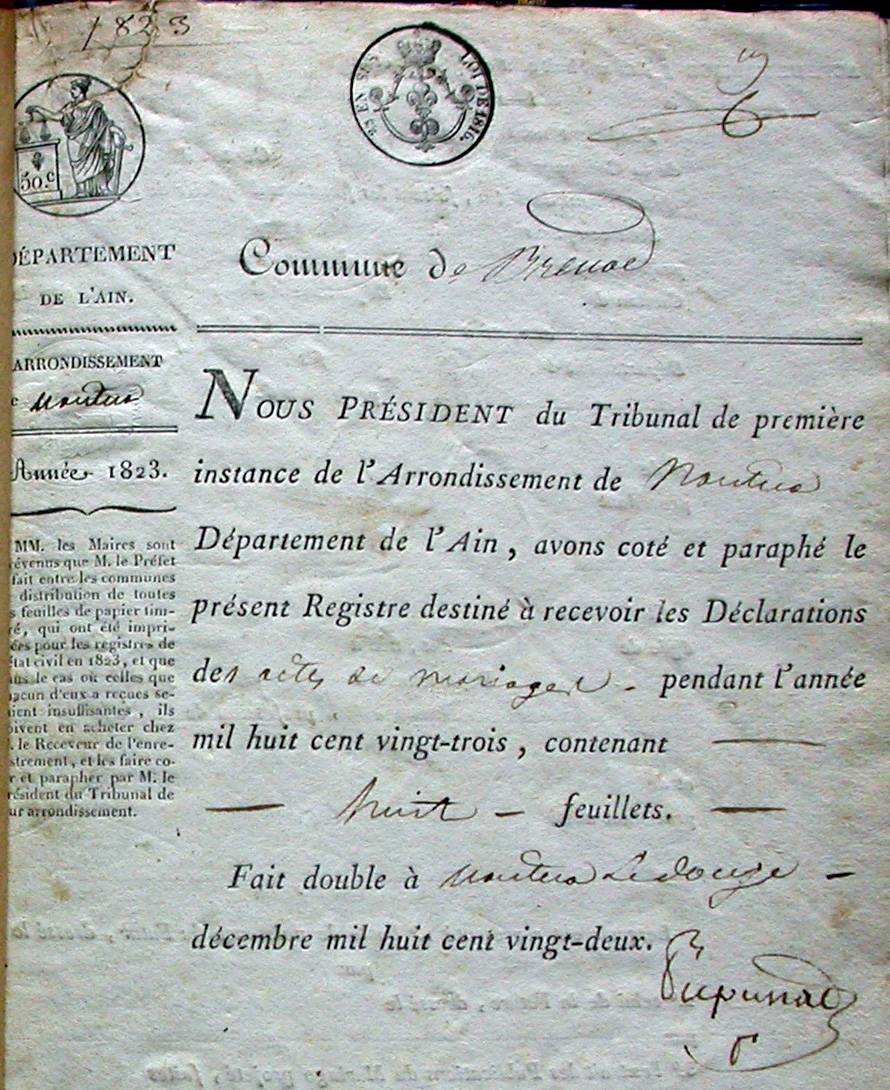 1823
25 EN SUS. LOI DE 1816.
50.c
DÉPARTEMENT
DE L'AIN.
ARRONDISSEMENT
Nantua
Année 1823.
MM. les Maires sont
révenus que M. le Préfet
fait entre les communes
distribution de toutes
s feuilles de papier tim-
ré, qui ont été impri-
ées pour les registres de
état civil en 1823, et que
ans le cas où celles que
acun d'eux a reçues se-
ient insuffisantes, ils
oivent en acheter chez
. le Receveur de l'enre-
strement, et les faire co-
r et parapher par M. le
résident du Tribunal de
ur arrondissement.
Commune de Brenod
NOUS PRÉSIDENT du Tribunal de première
instance de l'Arrondissement de Nantua
Département de l'Ain, avons coté et paraphé le
présent Registre destiné à recevoir les Déclarations
des actes de mariages - pendant l'année
mil huit cent vingt-trois, contenant —
— huit — feuillets. —
Fait double à Nantua Le douze —
décembre mil huit cent vingt-deux.